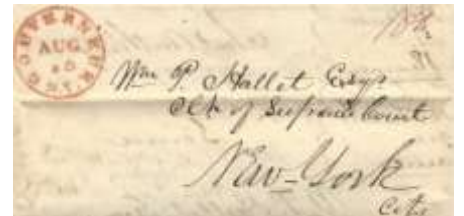 GOUVERNEUR
AUG
N.Y.
Wm P. Hallet Esqr
Clk of Supreme Court
New-York
City